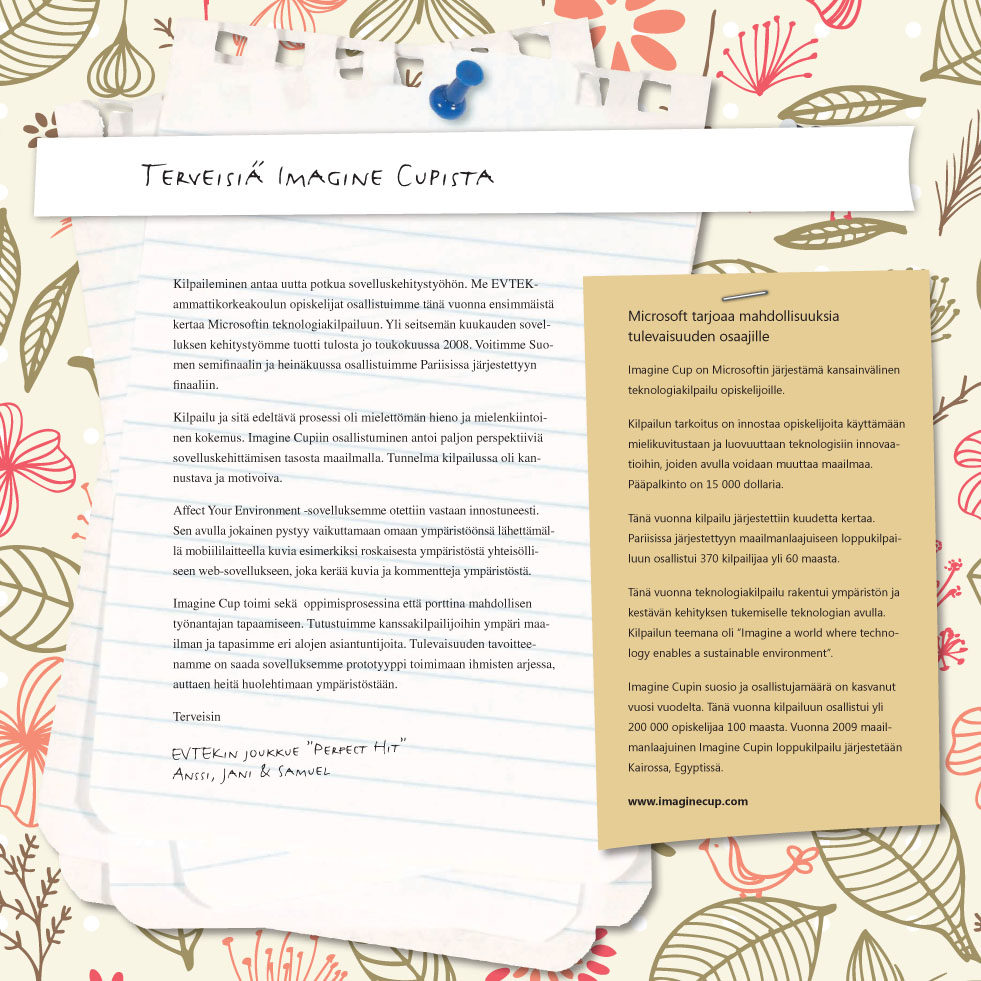 Terveisiä Imagine Cupista
Kilpaileminen antaa uutta potkua sovelluskehitystyöhön. Me EVTEK-
ammattikorkeakoulun opiskelijat osallistuimme tänä vuonna ensimmäistä
kertaa Microsoftin teknologiakilpailuun. Yli seitsemän kuukauden sovel-
luksen kehitystyömme tuotti tulosta jo toukokuussa 2008. Voitimme Suo-
men semifinaalin ja heinäkuussa osallistuimme Pariisissa järjestettyyn
finaaliin.
Kilpailu ja sitä edeltävä prosessi oli mielettömän hieno ja mielenkiintoi-
nen kokemus. Imagine Cupiin osallistuminen antoi paljon perspektiiviä
sovelluskehittämisen tasosta maailmalla. Tunnelma kilpailussa oli kan-
nustava ja motivoiva.
Affect Your Environment -sovelluksemme otettiin vastaan innostuneesti.
Sen avulla jokainen pystyy vaikuttamaan omaan ympäristöönsä lähettämäl-
lä mobiililaitteella kuvia esimerkiksi roskaisesta ympäristöstä yhteisölli-
seen web-sovellukseen, joka kerää kuvia ja kommentteja ympäristöstä.
Imagine Cup toimi sekä oppimisprosessina että porttina mahdollisen
työnantajan tapaamiseen. Tutustuimme kanssakilpailijoihin ympäri maa-
ilman ja tapasimme eri alojen asiantuntijoita. Tulevaisuuden tavoittee-
namme on saada sovelluksemme prototyyppi toimimaan ihmisten arjessa,
auttaen heitä huolehtimaan ympäristöstään.
Terveisin
EVTEKin joukkue "Perfect Hit"
Anssi, Jani & Samuel
Microsoft tarjoaa mahdollisuuksia
tulevaisuuden osaajille
Imagine Cup on Microsoftin järjestämä kansainvälinen
teknologiakilpailu opiskelijoille.
Kilpailun tarkoitus on innostaa opiskelijoita käyttämään
mielikuvitustaan ja luovuuttaan teknologisiin innovaa-
tioihin, joiden avulla voidaan muuttaa maailmaa.
Pääpalkinto on 15 000 dollaria.
Tänä vuonna kilpailu järjestettiin kuudetta kertaa.
Pariisissa järjestettyyn maailmanlaajuiseen loppukilpai-
luun osallistui 370 kilpailijaa yli 60 maasta.
Tänä vuonna teknologiakilpailu rakentui ympäristön ja
kestävän kehityksen tukemiselle teknologian avulla.
Kilpailun teemana oli "Imagine a world where techno-
logy enables a sustainable environment".
Imagine Cupin suosio ja osallistujamäärä on kasvanut
vuosi vuodelta. Tänä vuonna kilpailuun osallistui yli
200 000 opiskelijaa 100 maasta. Vuonna 2009 maail-
manlaajuinen Imagine Cupin loppukilpailu järjestetään
Kairossa, Egyptissä.
www.imaginecup.com